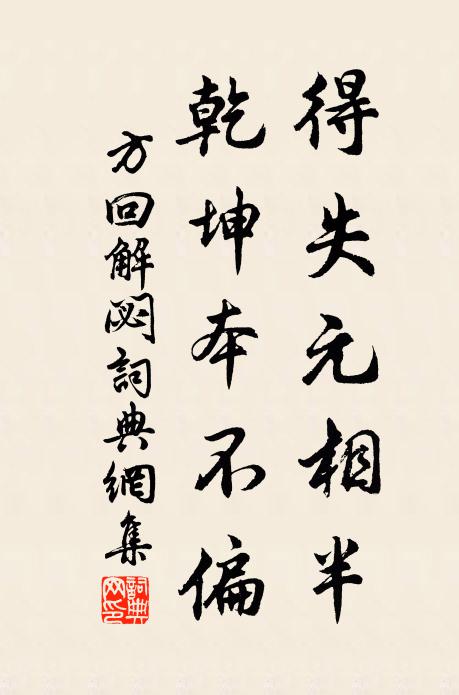 得失元相半
乾坤本不偏
方回解悶詞典網集
詞典
网印